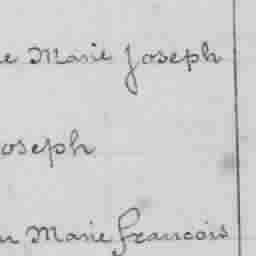 e Marie Joseph
oseph
n Marie francois